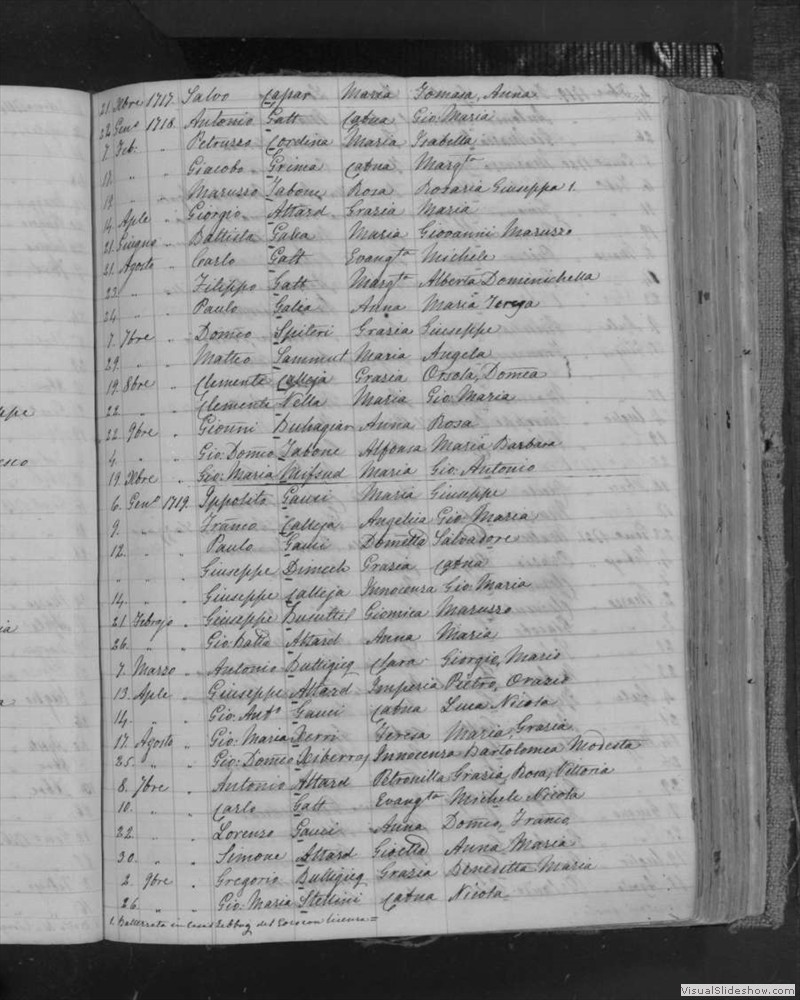 21. Xbre 1717. Salvo Capar Maria Tomasa, Anna
22 Genº 1718. Antonio Gatt Catna Gio Maria
7. Feb. " Petruzzo Cordina Maria Isabella
17. " " Giacobo Grima Catna Margta
" " Maruzzo Zabone Rosa Rosaria Giuseppa 1.
14. Aple " Giorgio Attard Grazia Maria
21. Giugno " Battista Galea Maria Giovanni Maruzzo
21. Agosto " Carlo Gatt Evangta Michele
23. " " Filippo Gatt Margta Alberta Dominichella
24 " " Paulo Galea Anna Maria Teresa
7. 7bre " Domco Spiteri Grazia Giuseppe
29. " " Matteo Sammut Maria Angela
19. 8bre " Clemente Calleja Grazia Orsola, Domca
22. " " Clemente Vella Maria Gio Maria
22. 9bre " Gionni Buhagiar Anna Rosa
4. " " Gio: Domco Zabone Alfonsa Maria Barbara
19. Xbre " Gio: Maria Mifsud Maria Gio: Antonio
6. Genº 1719. Ippolito Gauci Maria Giuseppe
9. " " Franco Calleja Angelica Gio Maria
12. " " Paulo Gauci Domella Salvadore
" " " Giuseppe Dimech Grazia Catna
14. " " Giuseppe Calleja Innocenza Gio Maria
21. Febrajo " Giuseppe Busuttil Giomica Maruzzo
26. " " Gio: Batta Attard Anna Maria
7. Marzo " Antonio Buttigieg Clara Giorgio, Mario
13. Aple " Giuseppe Attard Imperia Pietro, Orazio
14. " " Gio: Antº Gauci Catna Luca Nicola
17. Agosto " Gio: Maria Xerri Teresa Maria, Grazia
25. " " Gio: Domco Xiberras Innocenza Bartolomea Modesta
8. 7bre " Antonio Attard Petronilla Grazia, Rosa, Vittoria
10. " " Carlo Gatt Evangta Michele Nicola
22. " " Lorenzo Gauci Anna Domco, Franco
30. " " Simone Attard Gioella Anna Maria
2. 9bre " Gregorio Buttigieg Grazia Beneditta Maria
26. " " Gio: Maria Stellini Catna Nicola
1. Batterata in Casal Zebbug del con licenza =
VisualSlideshow.com